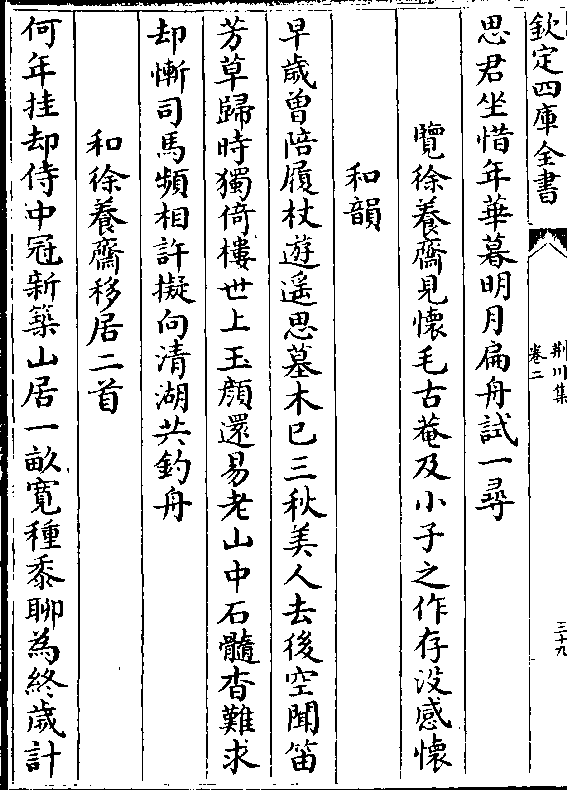 欽定四庫全書
荆川集
卷二
三十九
思君坐惜年華暮明月扁舟試一尋
覽徐養齋見懷毛古菴及小子之作存没感懷
和韻
早歲曽陪履杖遊遥思墓木已三秋美人去後空聞笛
芳草歸時獨倚樓世上玉顔還易老山中石髓杳難求
却慚司馬頻相許擬向清湖共釣舟
和徐養齋移居二首
何年挂却侍中冠新築山居一畝寛種黍聊為終歲計